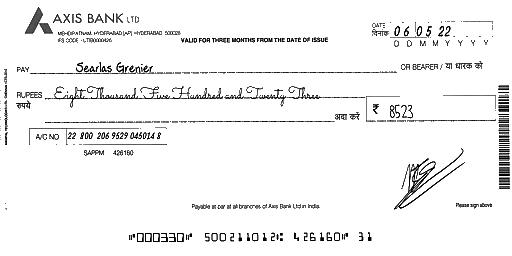 AXIS BANK LTD
MEHDIPATNAM, HYDERABAD [AP] HYDERABAD 500028
IFS CODE - UTIB0000426
VALID FOR THREE MONTHS FROM THE DATE OF ISSUE
DATE दिनांक 06 05 22
D D M M Y Y Y Y
PAY Searlas Grenier OR BEARER / या धारक को
RUPEES रुपये Eight Thousand Five Hundred and Twenty Three
अदा करें ₹ 8523
A/C NO 22 800 206 9529 045014 8
SAPPM 426160
Payable at par at all branches of Axis Bank Ltd in India.
Please sign above
⑈000330⑈ 500211012⑆ 426160⑈ 31